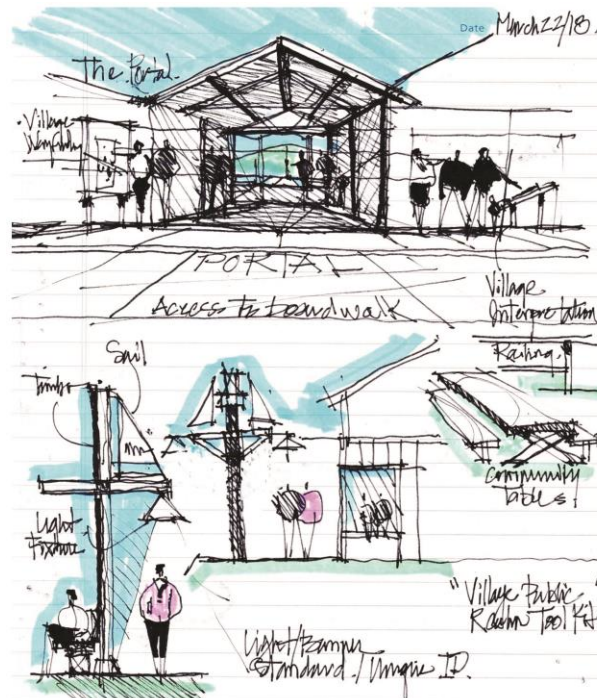 Date March 22/18.
The Portal.
Village
PORTAL
Access to boardwalk
Village
Interpretation
Railing.
Sail
Timber
Light
Fixture
Community
Tables.
"Village Public
Realm Tool Kit"
Light/Banner
Standard / Unique I.D.